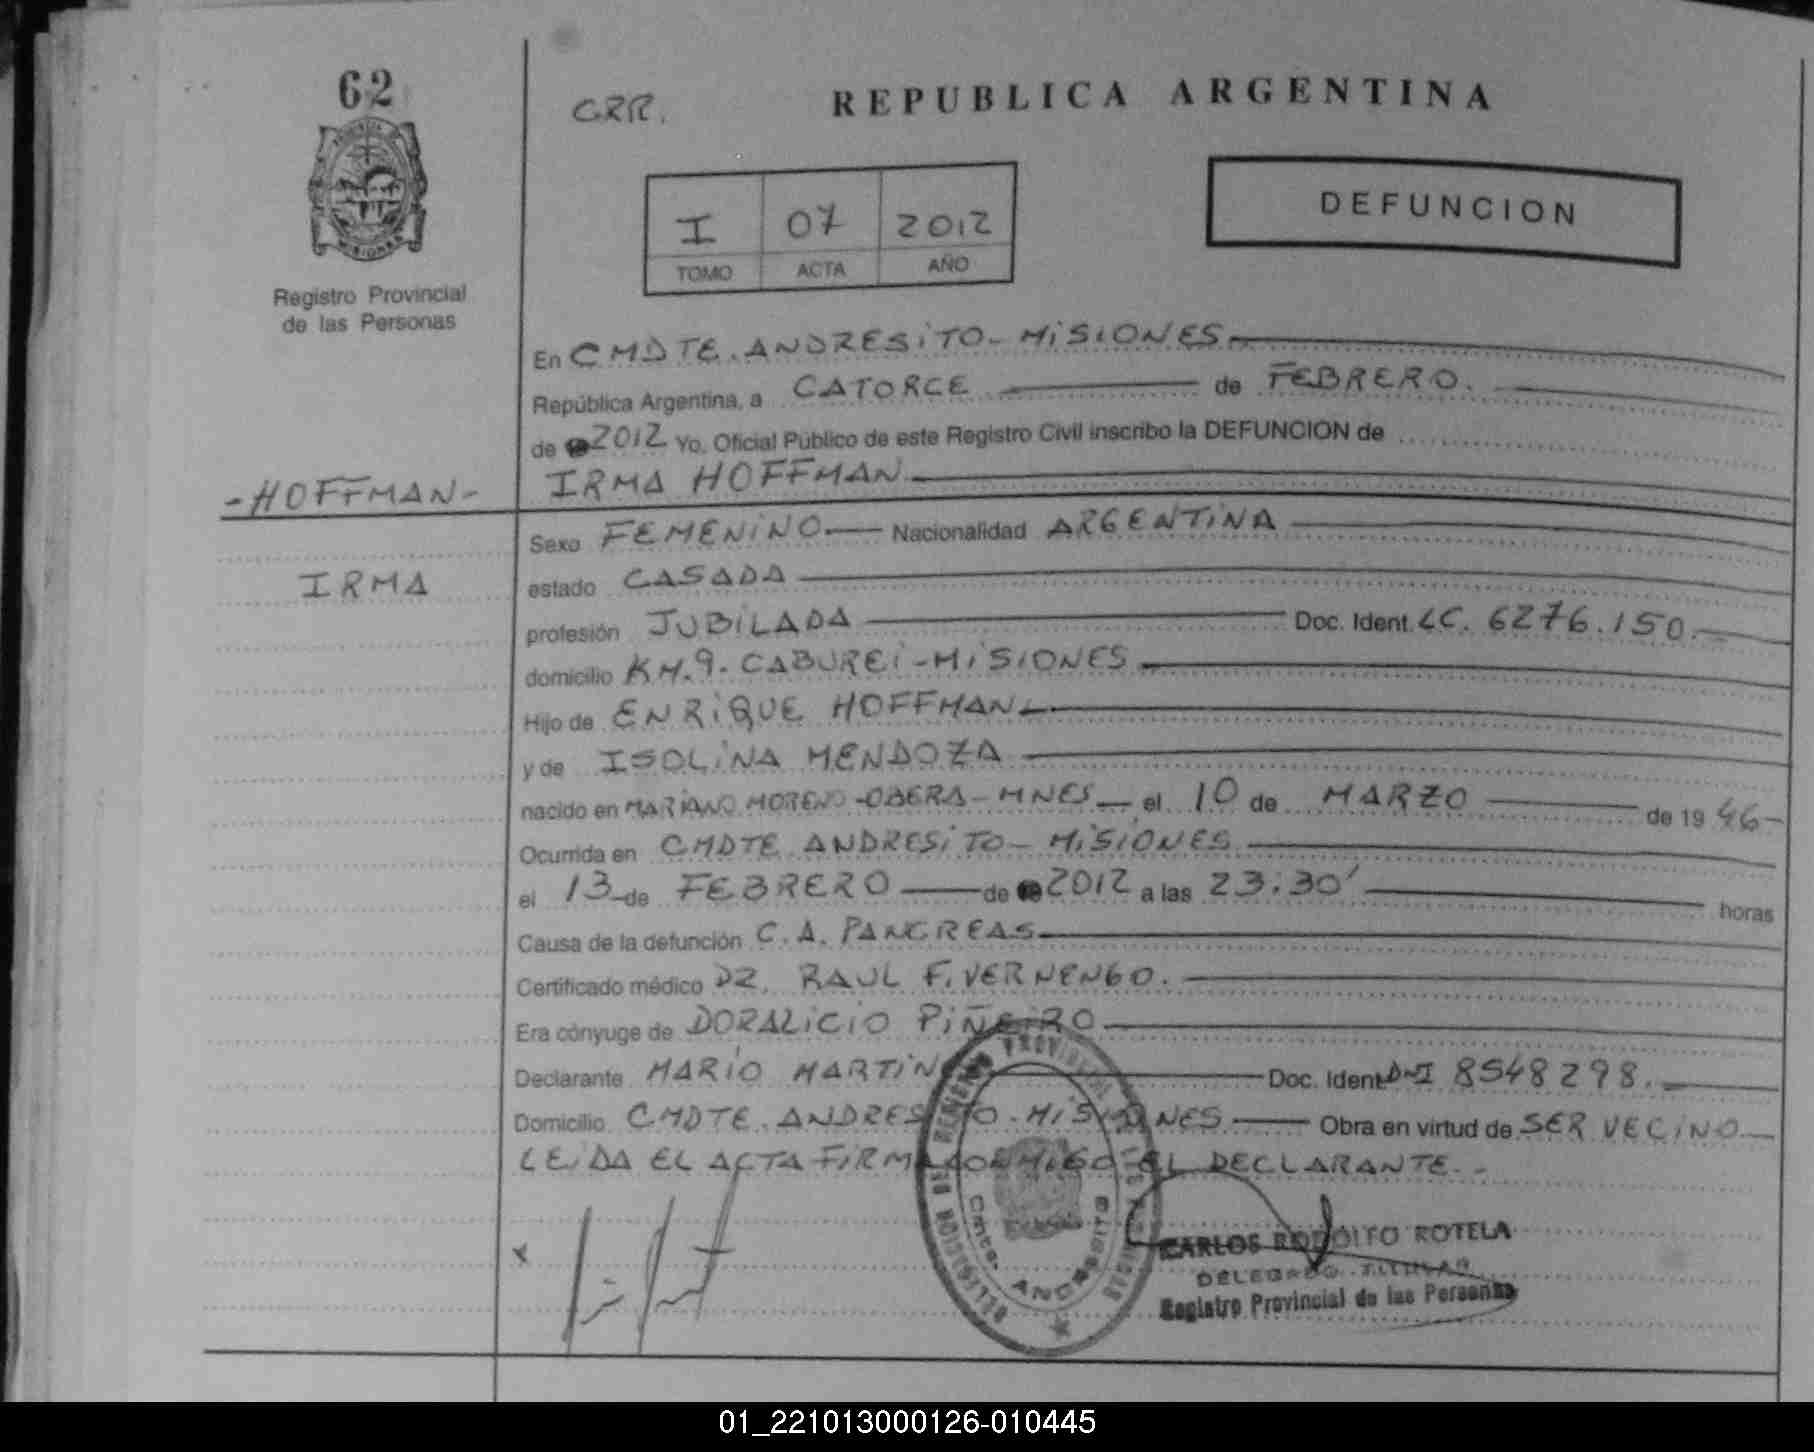 62
CRR.
REPUBLICA ARGENTINA
DEFUNCION
I 07 2012
TOMO ACTA AÑO
MISIONES
Registro Provincial
de las Personas
En CMDTE. ANDRESiTO - MiSiONES
República Argentina, a CATORCE de FEBRERO.
de 2012 Yo, Oficial Público de este Registro Civil inscribo la DEFUNCION de
-HOFFMAN-
IRMA HOFFMAN
Sexo FEMENiNO Nacionalidad ARGENTiNA
IRMA
estado CASADA
profesión JUBiLADA Doc. Ident. LC. 6276.150.
domicilio KM.9. CABUREi - MiSiONES
Hijo de ENRiQUE HOFFMAN
y de ISOLiNA MENDOZA
nacido en MARiANO MORENO - OBERA - MNES el 10 de MARZO de 19 46-
Ocurrida en CMDTE ANDRESiTO - MiSiONES
el 13 de FEBRERO de 2012 a las 23:30' horas
Causa de la defunción C.A. PANCREAS
Certificado médico DR. RAUL F. VERNENGO.
Era cónyuge de DORALiCiO PiÑEiRO
Declarante MARiO MARTiN Doc. Ident DNI 8548298.
Domicilio CMDTE. ANDRESiTO - MiSiONES Obra en virtud de SER VECiNO
LEiDA EL ACTA FiRMA CONMiGO EL DECLARANTE.-
X
Cmte. ANDRESITO
CARLOS RODOLFO ROTELA
DELEGADO TITULAR
Registro Provincial de las Personas
01_221013000126-010445